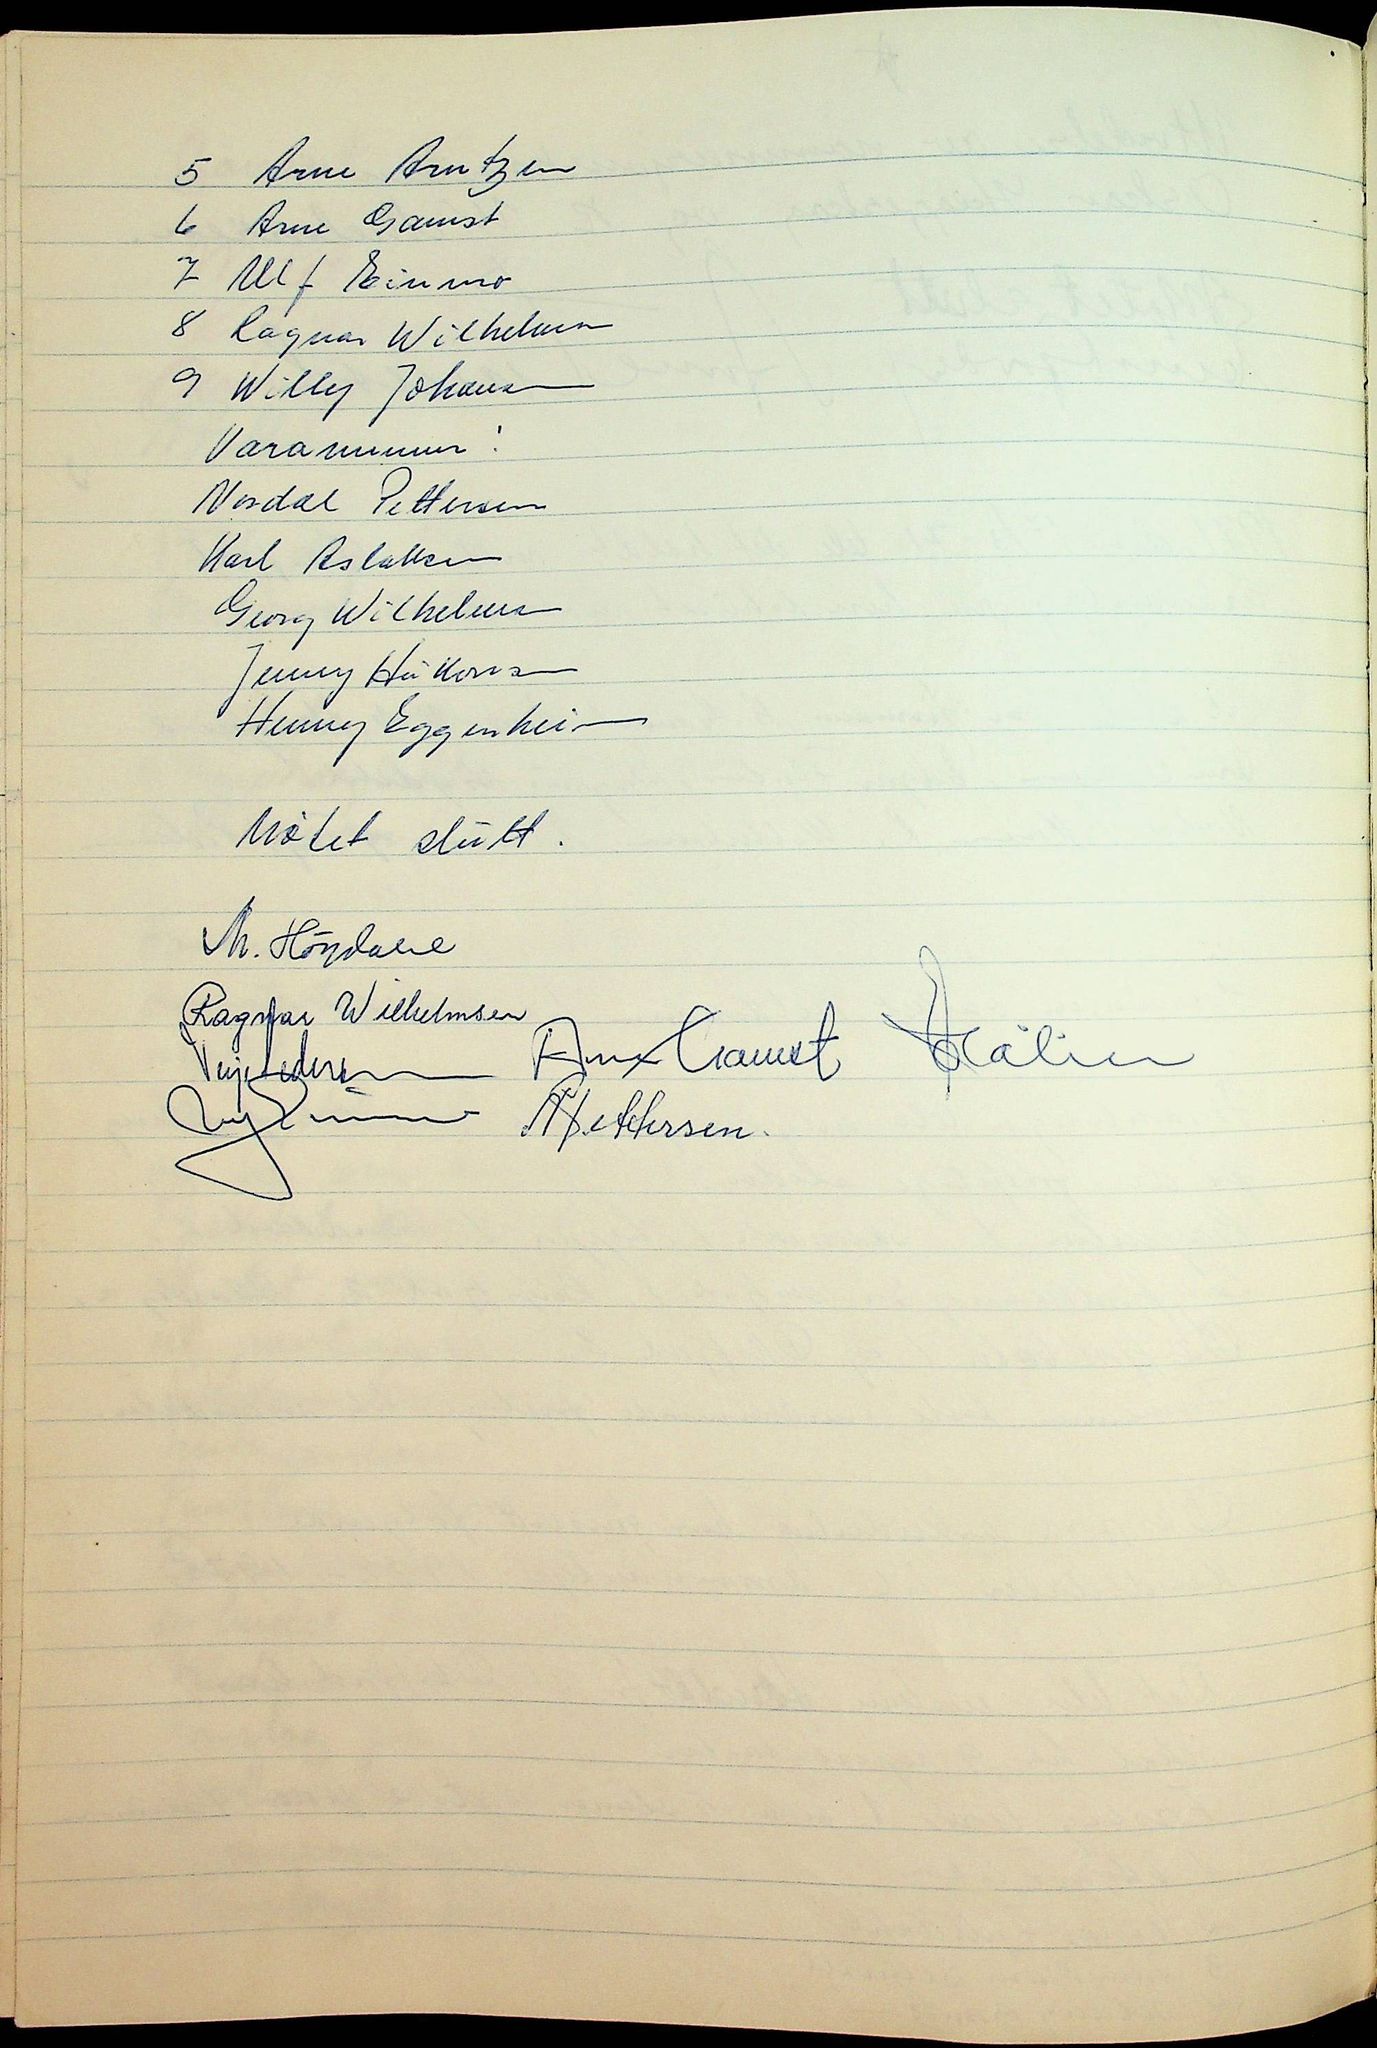 5 Arne Arntzen
6 Arne Gamst
7 Ulf Einmo
8 Ragnar Wilhelmsen
9 Willy Johansen
Varamenn:
Nordal Pettersen
Karl Aslaksen
Georg Wilhelmsen
Jenny Håkonsen
Henny Eggenheim
Møtet slutt.
M. Høydahl
Ragnar Wilhelmsen
Pedersen Arne Gamst
N Pettersen.